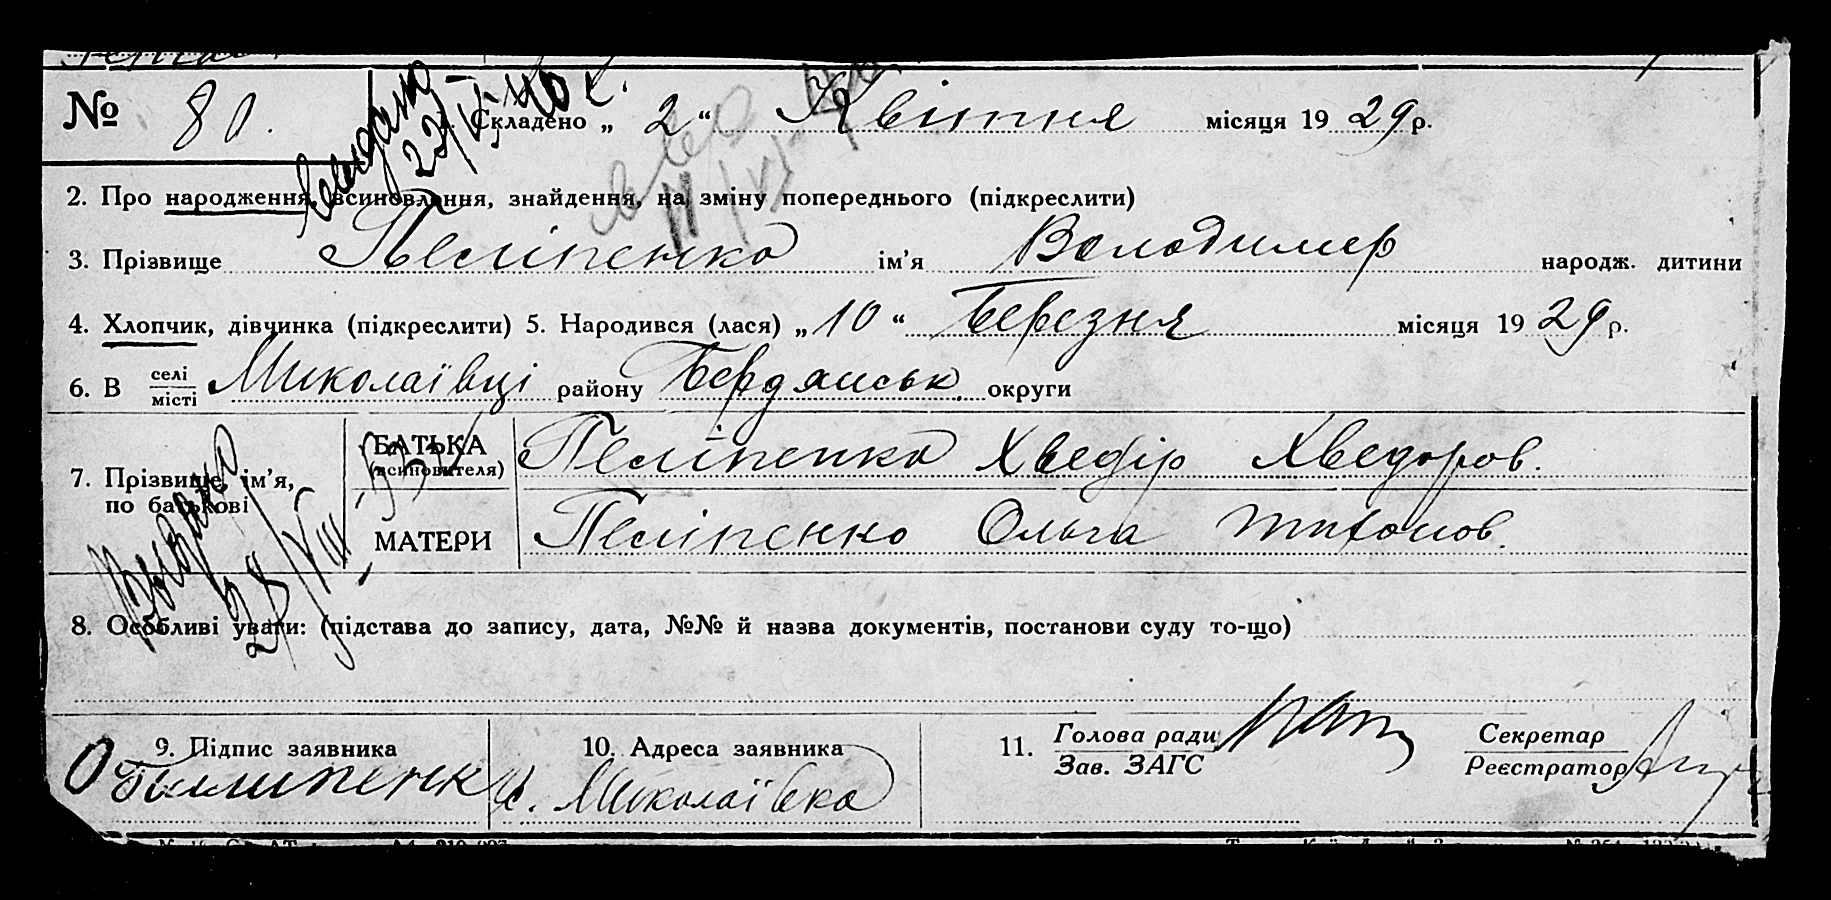 № 80. 1. Складено „ 2 “ Квітня місяця 1929 р.
2. Про народження, всиновлення, знайдення, на зміну попереднього (підкреслити)
3. Прізвище Пеліпенко ім’я Володимер народж. дитини
4. Хлопчик, дівчинка (підкреслити) 5. Народився (лася) „ 10 “ Березня місяця 1929 р.
6. В селі Миколаївці району Бердянськ. округи
місті
7. Прізвище, ім’я, по батькові
БАТЬКА (всиновителя) Пеліпенко Хведір Хведоров.
МАТЕРИ Пеліпенко Ольга Тихонов.
Выдано 28/VIII
8. Особливі уваги: (підстава до запису, дата, №№ й назва документів, постанови суду то-що)
9. Підпис заявника
О Пилипенк
10. Адреса заявника
с. Миколаївка
11. Голова ради
Зав. ЗАГС
Секретар
Реєстратор